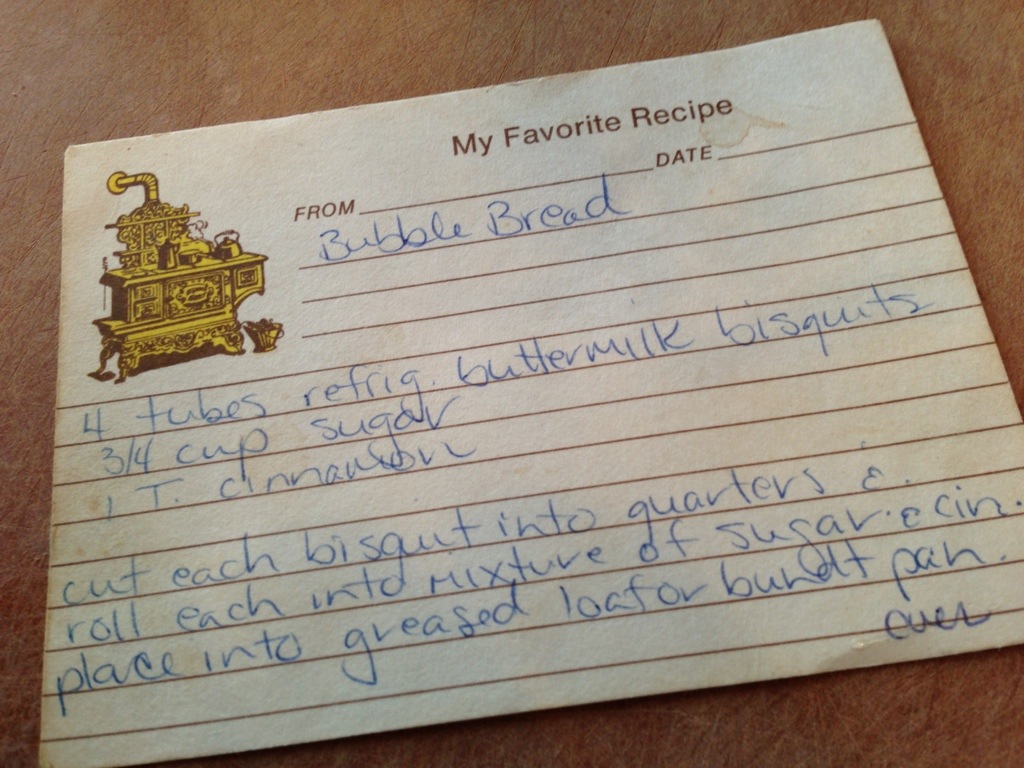 My Favorite Recipe
FROM DATE
Bubble Bread
4 tubes refrig. buttermilk bisquits
3/4 cup sugar
1 T. cinnamon
cut each bisqut into quarters &
roll each into mixture of sugar & cin.
place into greased loaf or bundt pan.
over